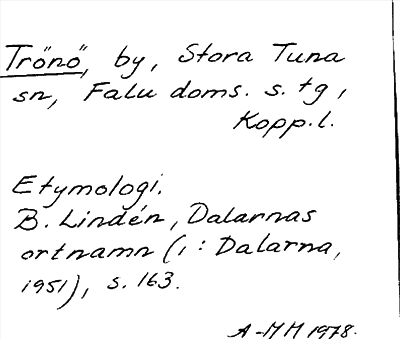 Trönö, by, Stora Tuna
sn, Falu doms. s. tg,
Kopp. l.
Etymologi.
B. Lindén, Dalarnas
ortnamn (i: Dalarna,
1951), s. 163.
A-MM 1978.